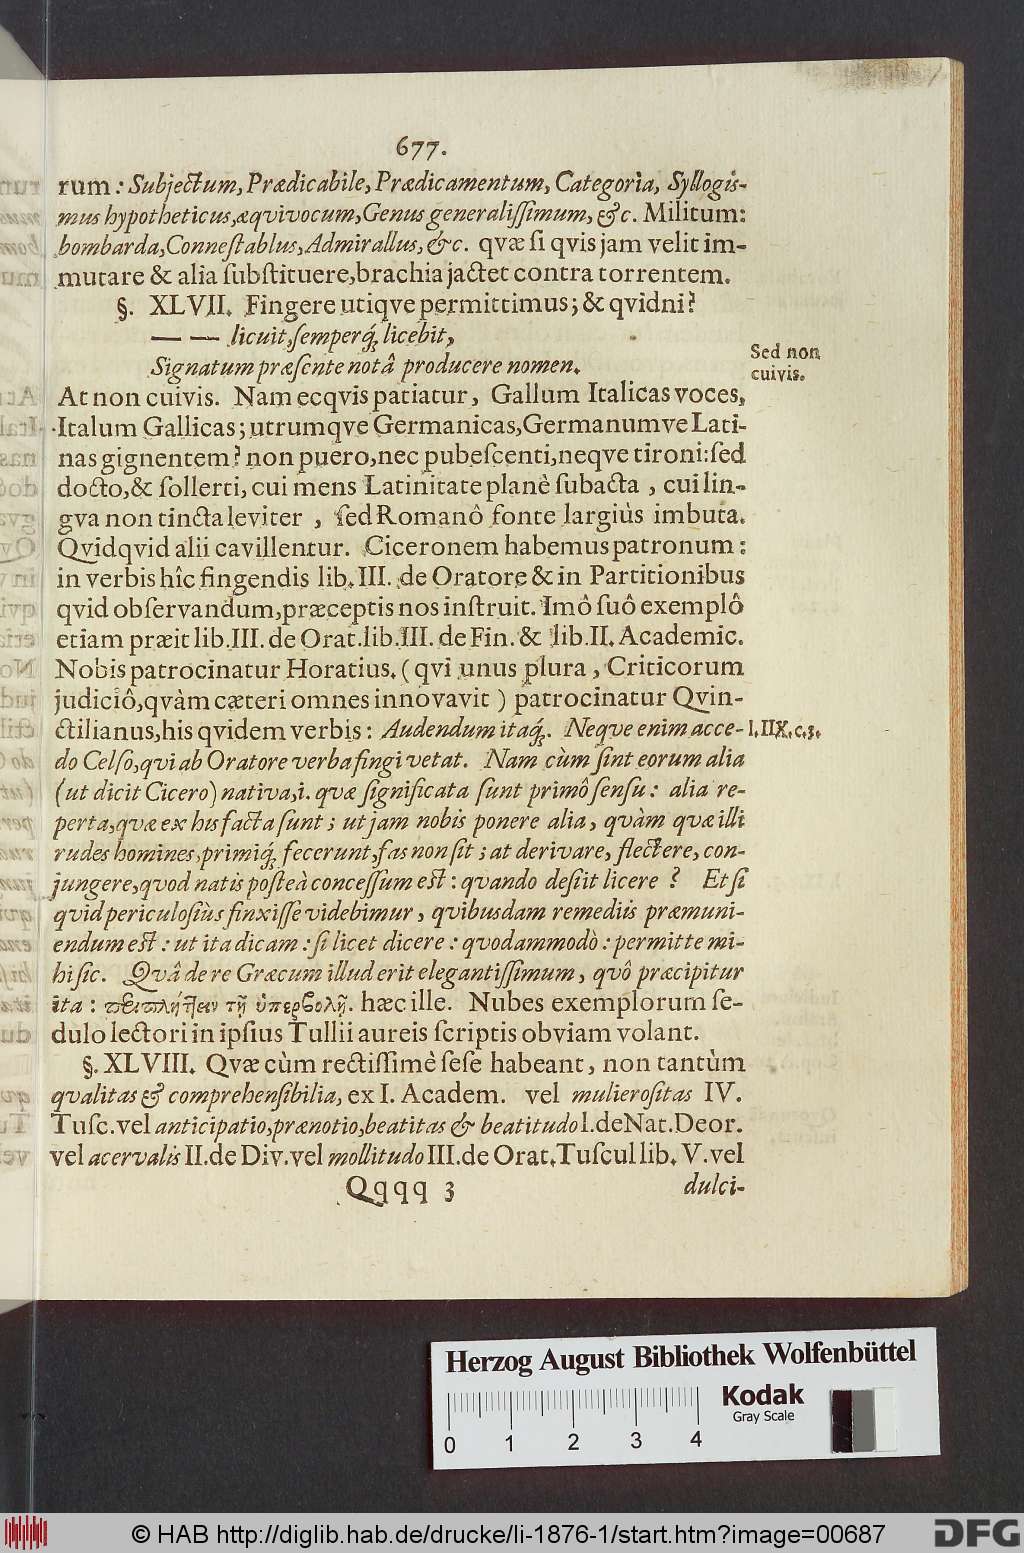 677.
rum: Subjectum, Prædicabile, Prædicamentum, Categoria, Syllogis-
mus hypotheticus, æqvivocum, Genus generaliſſimum, &c. Militum:
bombarda, Conneſtablus, Admirallus, &c. qvæ ſi qvis jam velit im-
mutare & alia ſubſtituere, brachia jactet contra torrentem.
§. XLVII. Fingere utiqve permittimus; & qvidni?
— — licuit, ſemperq́; licebit,
Signatum præſente notâ producere nomen.
Sed non
cuivis.
At non cuivis. Nam ecqvis patiatur, Gallum Italicas voces,
Italum Gallicas; utrumqve Germanicas, Germanumve Lati-
nas gignentem? non puero, nec pubeſcenti, neqve tironi: ſed
docto, & ſollerti, cui mens Latinitate planè ſubacta, cui lin-
gva non tincta leviter, ſed Romanô fonte largiùs imbuta.
Qvidqvid alii cavillentur. Ciceronem habemus patronum:
in verbis hîc fingendis lib. III. de Oratore & in Partitionibus
qvid obſervandum, præceptis nos inſtruit. Imô ſuô exemplô
etiam præit lib. III. de Orat. lib. III. de Fin. & lib. II. Academic.
Nobis patrocinatur Horatius. (qvi unus plura, Criticorum
judiciô, qvàm cæteri omnes innovavit) patrocinatur Qvin-
ctilianus, his qvidem verbis: Audendum itaq́;. Neqve enim acce-
l. IIX. c. 3.
do Celſo, qvi ab Oratore verba fingi vetat. Nam cùm ſint eorum alia
(ut dicit Cicero) nativa, i. qvæ ſignificata ſunt primô ſenſu: alia re-
perta, qvæ ex his facta ſunt; ut jam nobis ponere alia, qvàm qvæ illi
rudes homines, primiq́; fecerunt, fas non ſit; at derivare, flectere, con-
jungere, qvod natis poſteà conceſſum eſt: qvando deſiit licere? Et ſi
qvid periculoſiùs finxiſſe videbimur, qvibusdam remediis præmuni-
endum eſt: ut ita dicam: ſi licet dicere: qvodammodò: permitte mi-
hi ſic. Qvâ de re Græcum illud erit elegantiſſimum, qvô præcipitur
ita: τῇ ὑπερβολῇ. hæc ille. Nubes exemplorum ſe-
dulo lectori in ipſius Tullii aureis ſcriptis obviam volant.
§. XLVIII. Qvæ cùm rectiſſimè ſeſe habeant, non tantùm
qvalitas & comprehenſibilia, ex I. Academ. vel mulieroſitas IV.
Tuſc. vel anticipatio, prænotio, beatitas & beatitudo l. de Nat. Deor.
vel acervalis II. de Div. vel mollitudo III. de Orat. Tuſcul lib. V. vel
Qqqq 3
dulci-
Herzog August Bibliothek Wolfenbüttel
0 1 2 3 4
Kodak
Gray Scale
© HAB http://diglib.hab.de/drucke/li-1876-1/start.htm?image=00687
DFG